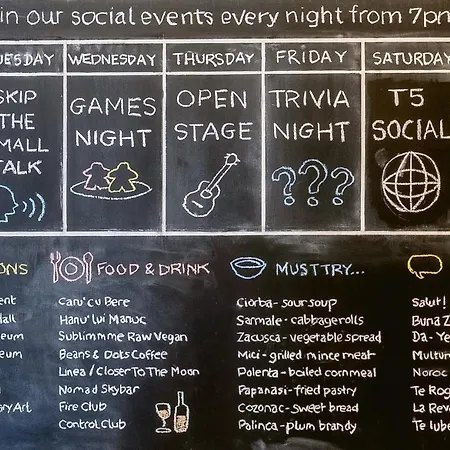 in our social events every night from 7pm
UESDAY
WEDNESDAY
THURSDAY
FRIDAY
SATURDAY
SKIP
THE
SMALL
TALK
GAMES
NIGHT
OPEN
STAGE
TRIVIA
NIGHT
T5
SOCIAL
ONS
FOOD & DRINK
MUST TRY...
ent
Caru' cu Bere
Ciorba- sour soup
Salut!
Hanu' lui Manuc
Sarmale - cabbage rolls
Buna Z
eum
Sublimme Raw Vegan
Zacusca - vegetable spread
Da - Ye
eum
Beans & Dots Coffee
Mici - grilled mince meat
Multum
Linea / Closer To The Moon
Polenta - boiled cornmeal
Noroc
Nomad Skybar
Papanasi - fried pastry
Te Rog
ary Art
Fire Club
Cozonac - sweet bread
La Reve
Control Club
Palinca - plum brandy
Te iube